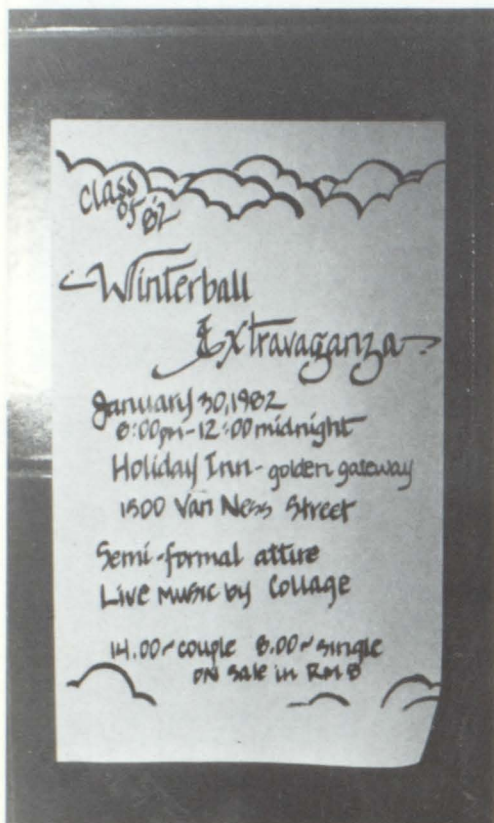 Class
of 82
Winterball
Extravaganza
January 30, 1982
8:00pm-12:00 midnight
Holiday Inn - golden gateway
1500 Van Ness Street
Semi-formal attire
Live Music by Collage
14.00~couple 8.00~single
on sale in Rm 8